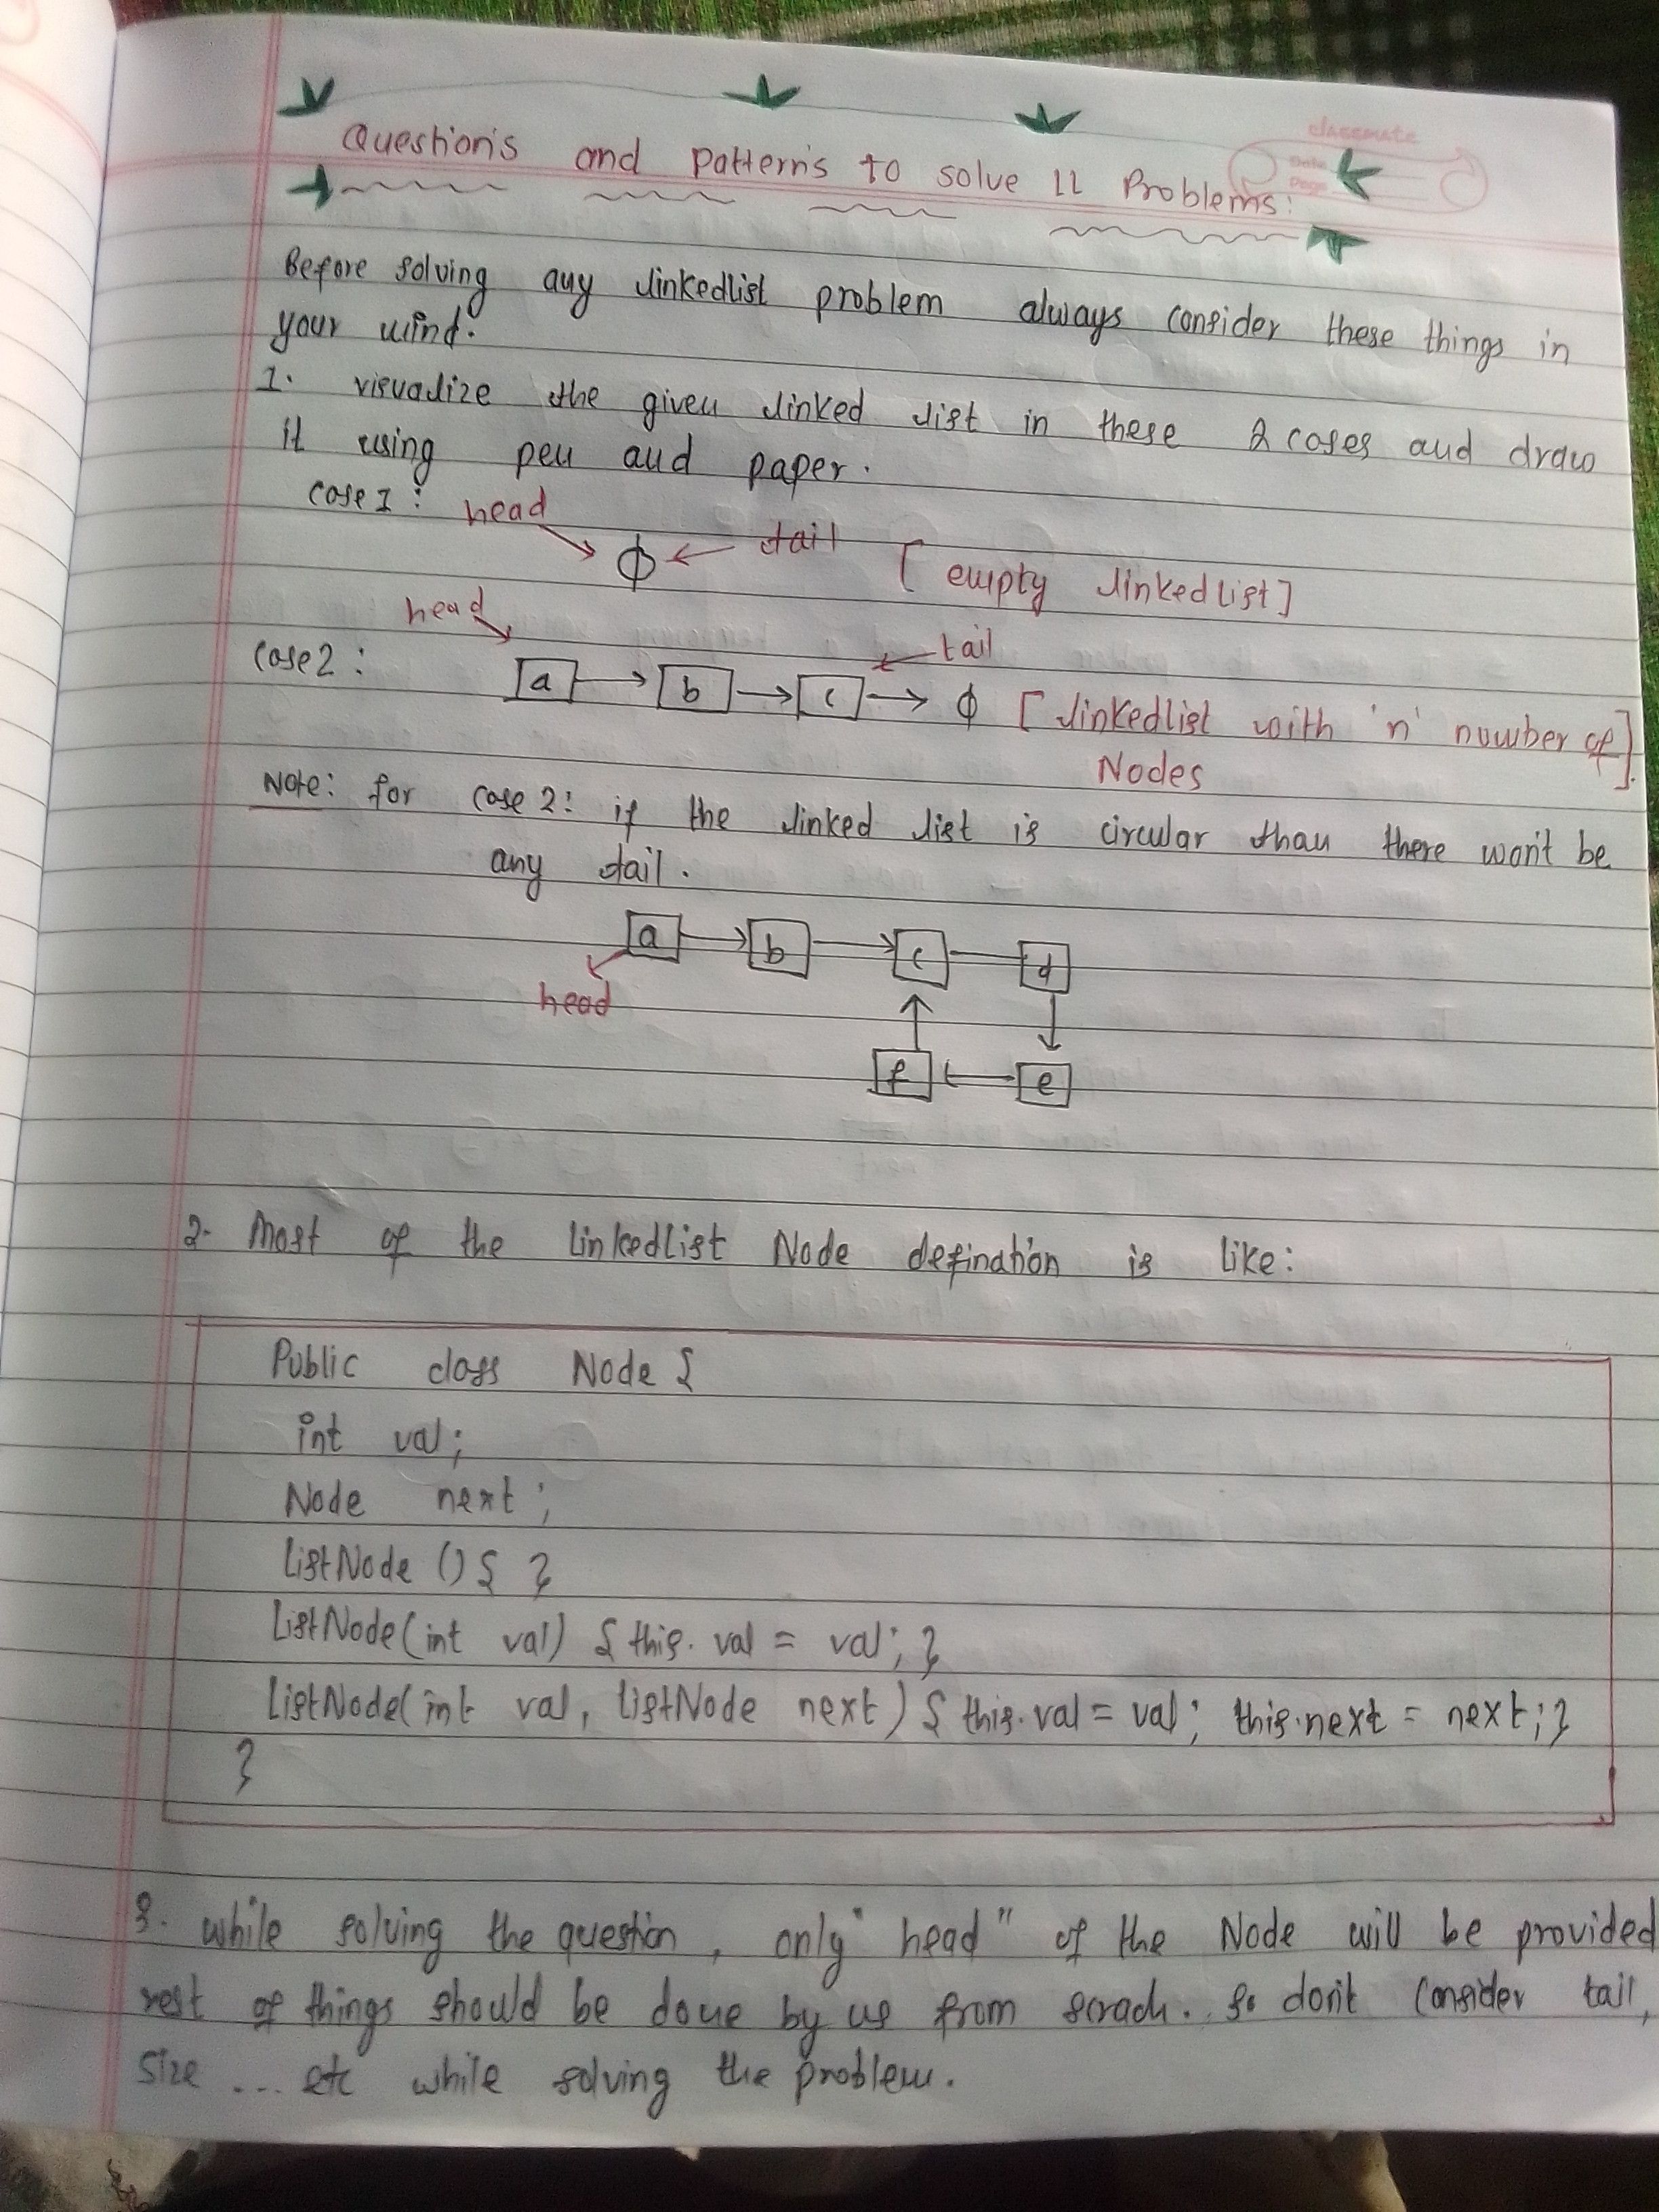 classmate
Date
Page
Question's and Pattern's to solve LL Problems:
Before solving any linkedlist problem always consider these things in
your mind.
1. visualize the given linked list in these 2 cases and draw
it using pen and paper.
case 1: head
ϕ tail [empty linkedlist]
head
case 2: a b c ϕ tail [linkedlist with 'n' number of]
Nodes
Note: for case 2: if the linked list is circular than there won't be
any tail.
a b c d
head
f e
2. Most of the linkedlist Node defination is like:
Public class Node {
int val;
Node next;
ListNode () { }
ListNode(int val) { this.val = val; }
ListNode(int val, listNode next) { this.val = val; this.next = next; }
}
3. while solving the question, only "head" of the Node will be provided
rest of things should be done by us from scrach. so don't consider tail,
size ... etc while solving the problem.